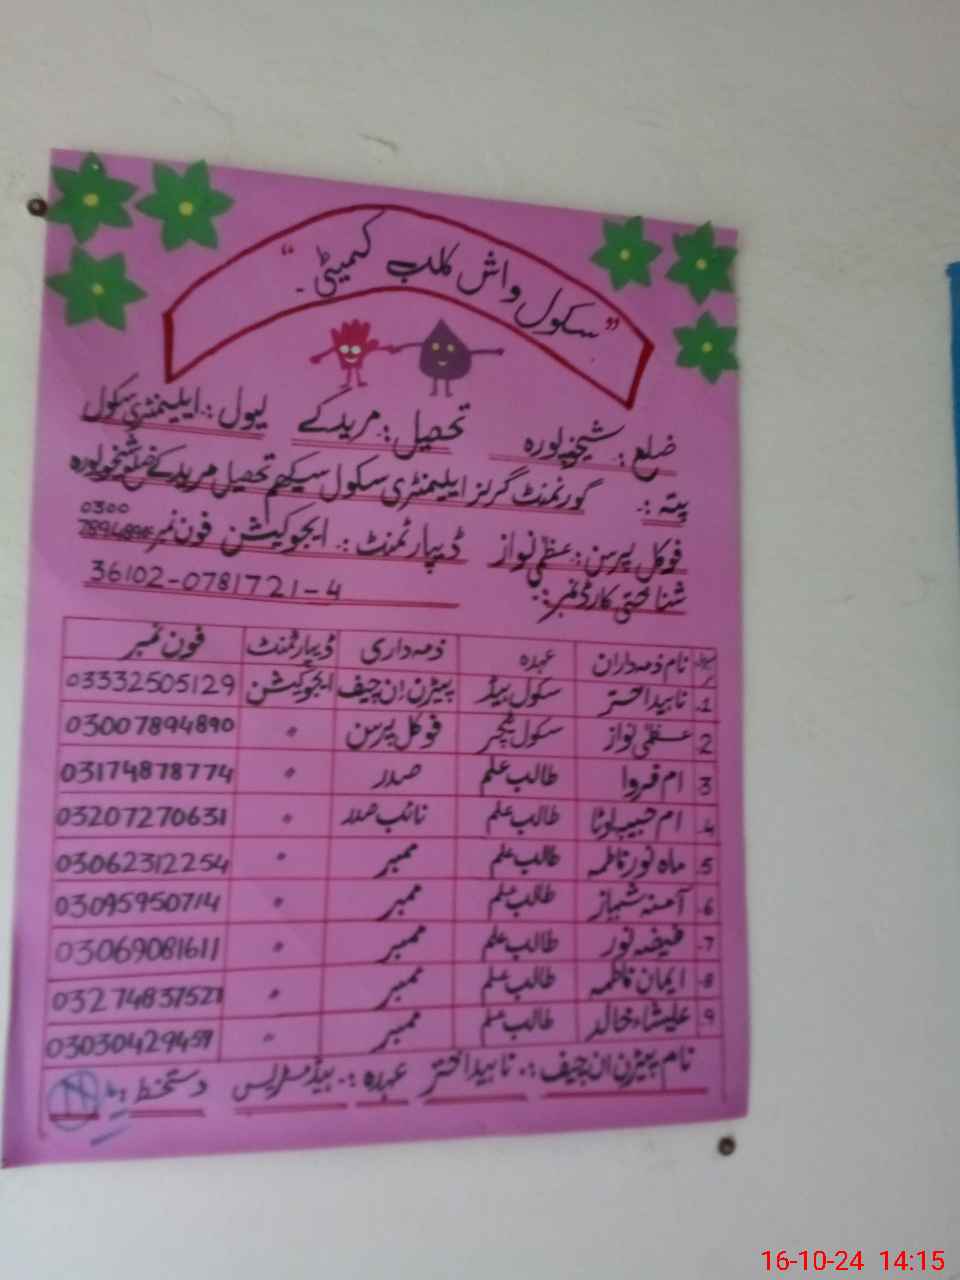 "سکول واش کلب کمیٹی۔"
ضلع:۔ شیخوپورہ تحصیل:۔ مریدکے لیول:۔ ایلیمنٹری سکول
پتہ:۔ گورنمنٹ گرلز ایلیمنٹری سکول سیکھم تحصیل مریدکے ضلع شیخوپورہ
فوکل پرسن:۔ عظمیٰ نواز ڈیپارٹمنٹ:۔ ایجوکیشن فون نمبر 0300 7894890
شناختی کارڈ نمبر:۔ 36102-0781721-4
نام ذمہ داران عہدہ ذمہ داری ڈیپارٹمنٹ فون نمبر
1. ناہید اختر سکول ہیڈ پیٹرن ان چیف ایجوکیشن 03332505129
2 عظمیٰ نواز سکول ٹیچر فوکل پرسن " 03007894890
3 ام فروا طالب علم صدر " 03174878774
4. ام حبیب لوٹا طالب علم نائب صدر " 03207270631
5. ماہ نور فاطمہ طالب علم ممبر " 03062312254
6. آمنہ شہباز طالب علم ممبر " 03095950714
7. فیضہ نور طالب علم ممبر " 03069081611
8. ایمان فاطمہ طالب علم ممبر " 03274837521
9. علیشاء خالد طالب علم ممبر " 03030429459
نام پیٹرن ان چیف:۔ ناہید اختر عہدہ:۔ ہیڈ مسٹریس دستخط:۔
16-10-24 14:15